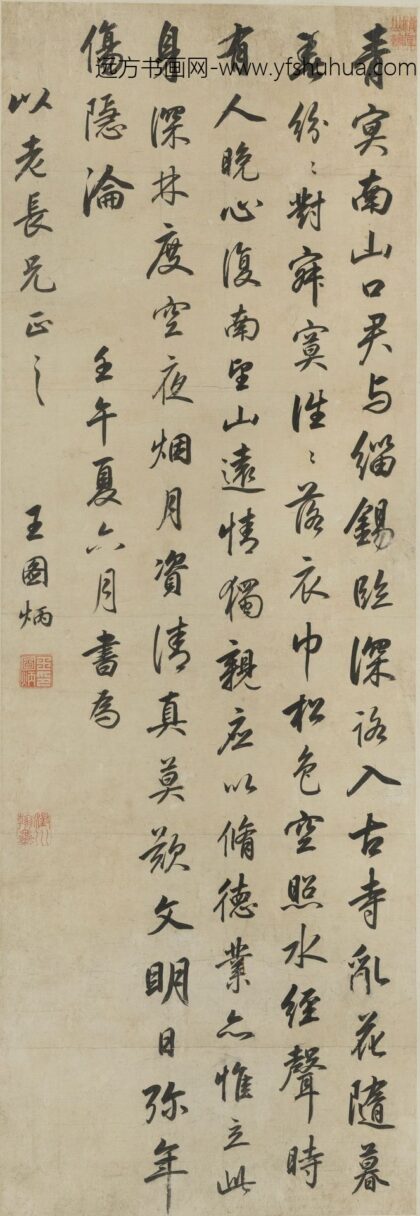 青冥南山口君与缁錫隣深路入古寺亂花隨暮
春紛〻對寂寞往〻落衣巾松色空照水經聲時
有人晚心復南望山遠情獨親應以脩德業亦惟立此
身深林度空夜烟月資清真莫歎文明日弥年
傷隱淪
壬午夏六月書為
以老長兄正之
王國炳
远方书画网-www.yfshuhua.com